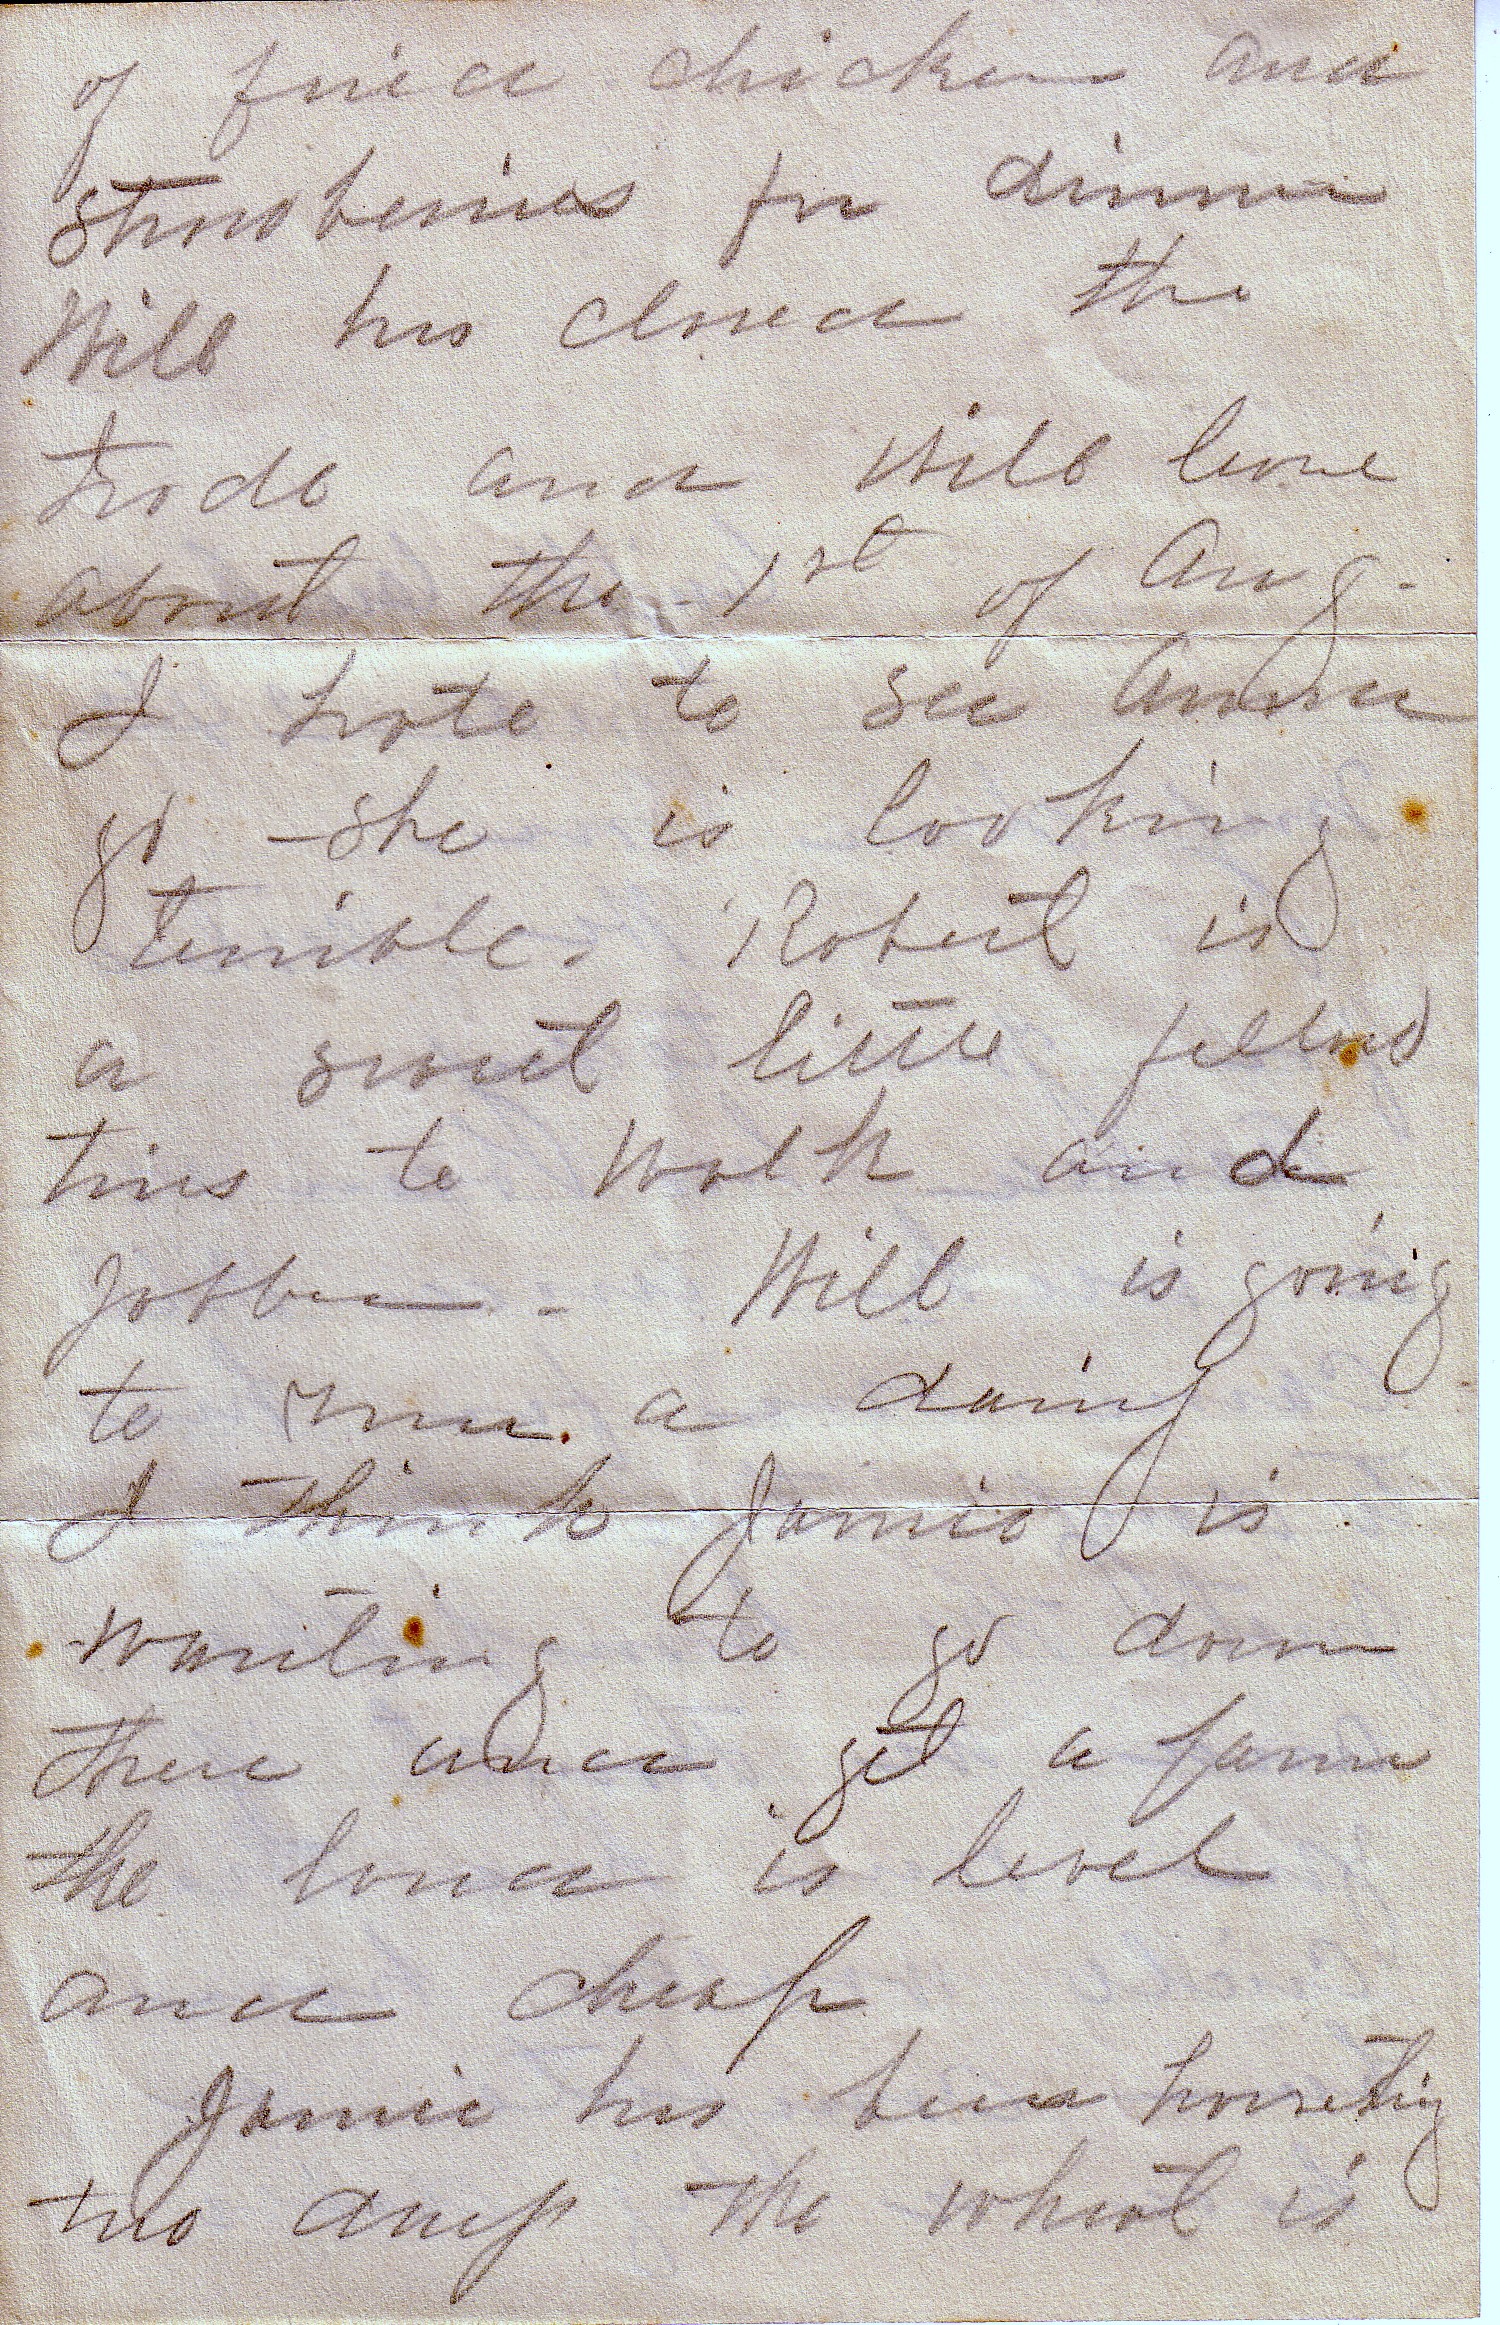 of fried chicken and
strawberries for dinner
Will has closed the
trade and will leave
about the 1st of Aug.
I hate to see Anna
go - She is looking
terrible. Robert is
a sweet little fellow
tries to walk and
jabber - Will is going
to run a dairy
I think Jamie is
wanting to go down
there and get a farm
the land is level
and cheap
Jamie has been harvesting
two days the wheat is